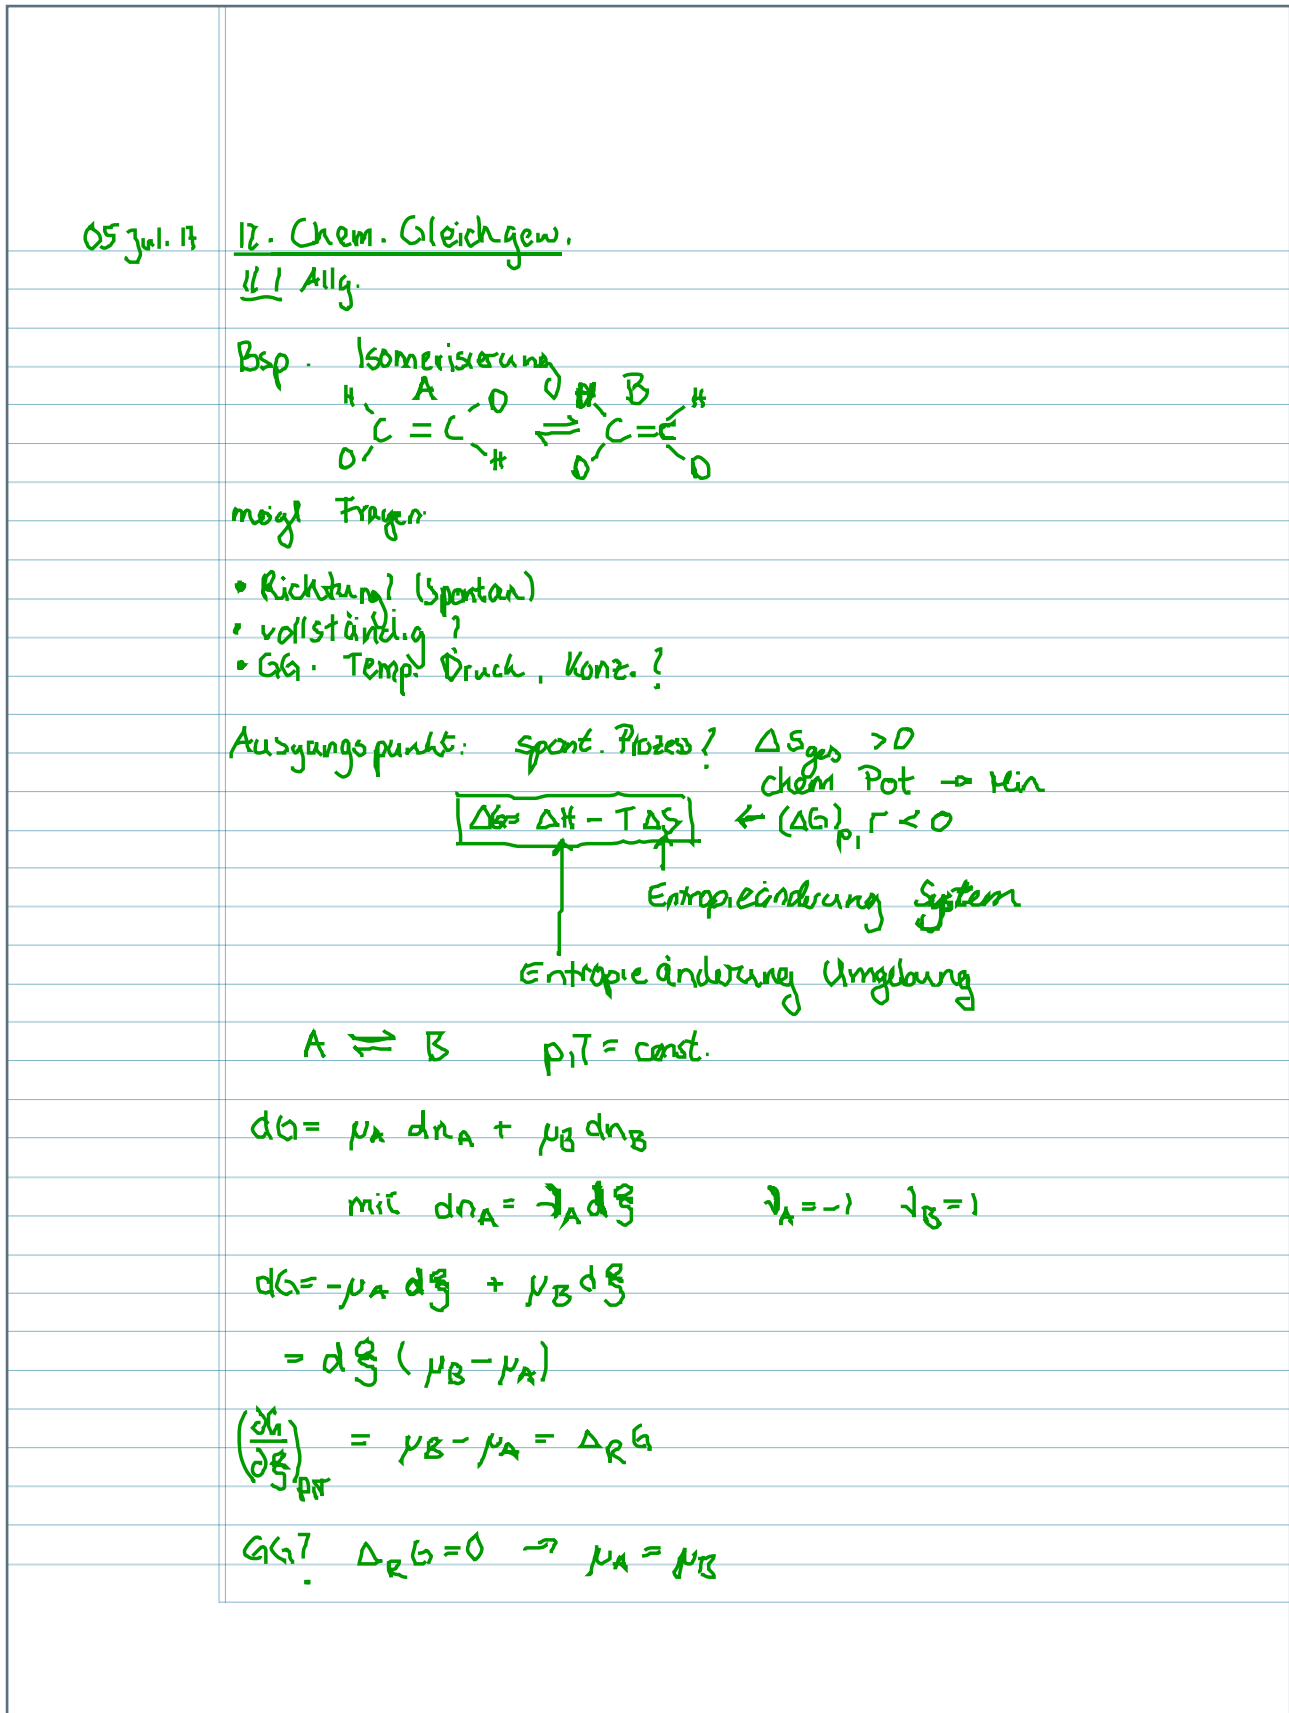 05 Jul. 17
12. Chem. Gleichgew.
Allg.
Bsp. Isomerisierung
A B
H D H H
C = C ⇌ C = C
D H D D
mögl Fragen
• Richtung? (spontan)
• vollständig?
• GG. Temp. Druck, Konz.?
Ausgangspunkt: spont. Prozess? ΔS_ges > 0
chem Pot → klein
ΔG = ΔH - TΔS ← (ΔG)_p,T < 0
Entropieänderung System
Entropieänderung Umgebung
A ⇌ B p,T = const.
dG = μ_A dn_A + μ_B dn_B
mit dn_A = ν_A dξ ν_A = -1 ν_B = 1
dG = -μ_A dξ + μ_B dξ
= dξ (μ_B - μ_A)
(∂G/∂ξ)_p,T = μ_B - μ_A = Δ_R G
GG? Δ_R G = 0 → μ_A = μ_B